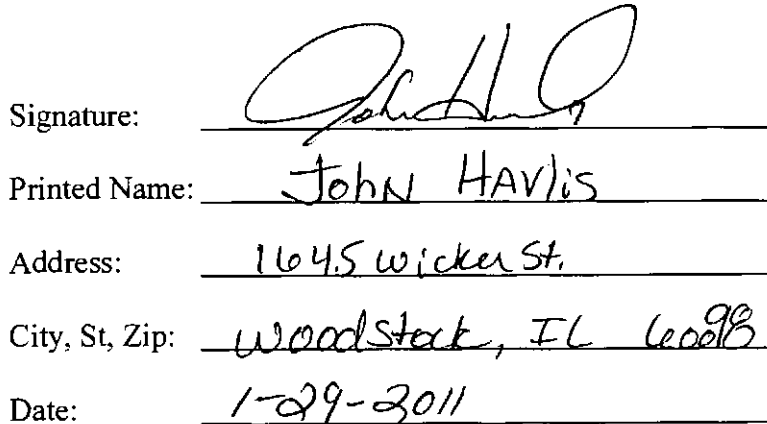 Signature: John H
Printed Name: John HAVlis
Address: 1645 wicker St.
City, St, Zip: woodstock, IL 60098
Date: 1-29-2011